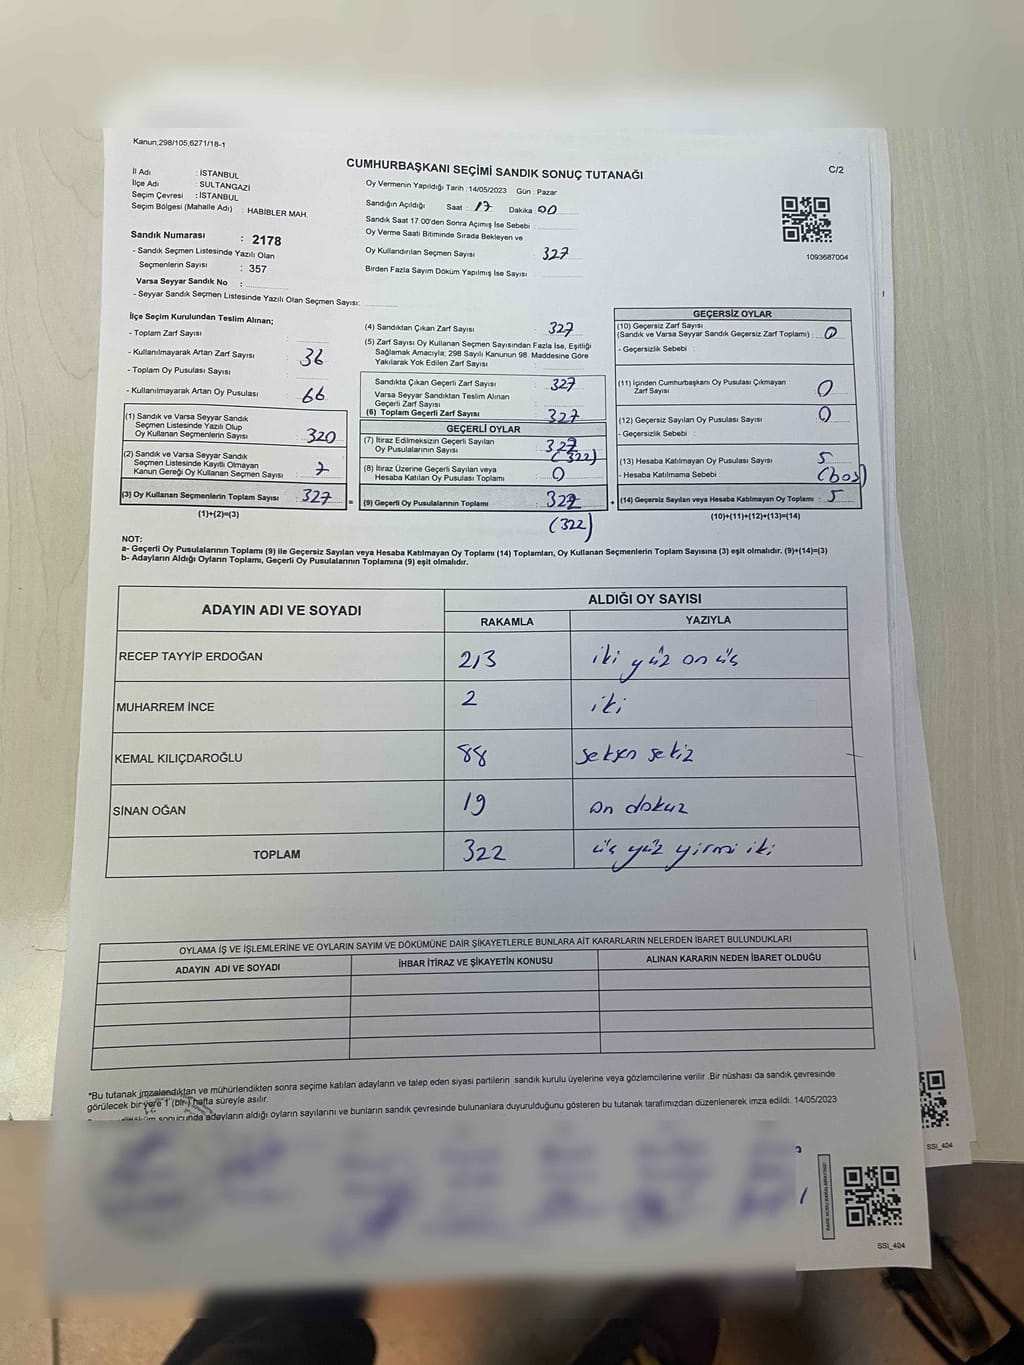 Kanun;298/105,6271/18-1
CUMHURBAŞKANI SEÇİMİ SANDIK SONUÇ TUTANAĞI
C/2
İl Adı : İSTANBUL
İlçe Adı : SULTANGAZİ
Seçim Çevresi : İSTANBUL
Seçim Bölgesi (Mahalle Adı) : HABİBLER MAH.
Sandık Numarası : 2178
- Sandık Seçmen Listesinde Yazılı Olan
Seçmenlerin Sayısı : 357
Varsa Seyyar Sandık No :
- Seyyar Sandık Seçmen Listesinde Yazılı Olan Seçmen Sayısı:
Oy Vermenin Yapıldığı Tarih :14/05/2023 Gün : Pazar
Sandığın Açıldığı Saat : 17 Dakika : 00
Sandık Saat 17:00'den Sonra Açımış İse Sebebi :
Oy Verme Saati Bitiminde Sırada Bekleyen ve
Oy Kullandırılan Seçmen Sayısı 327
Birden Fazla Sayım Döküm Yapılmış İse Sayısı
1093687004
İlçe Seçim Kurulundan Teslim Alınan;
- Toplam Zarf Sayısı
- Kullanılmayarak Artan Zarf Sayısı 36
- Toplam Oy Pusulası Sayısı
- Kullanılmayarak Artan Oy Pusulası 66
(1) Sandık ve Varsa Seyyar Sandık
Seçmen Listesinde Yazılı Olup
Oy Kullanan Seçmenlerin Sayısı : 320
(2) Sandık ve Varsa Seyyar Sandık
Seçmen Listesinde Kayıtlı Olmayan
Kanun Gereği Oy Kullanan Seçmen Sayısı : 7
(3) Oy Kullanan Seçmenlerin Toplam Sayısı : 327 =
(1)+(2)=(3)
(4) Sandıktan Çıkan Zarf Sayısı 327
(5) Zarf Sayısı Oy Kullanan Seçmen Sayısından Fazla İse, Eşitliği
Sağlamak Amacıyla; 298 Sayılı Kanunun 98. Maddesine Göre
Yakılarak Yok Edilen Zarf Sayısı
Sandıkta Çıkan Geçerli Zarf Sayısı 327
Varsa Seyyar Sandıktan Teslim Alınan
Geçerli Zarf Sayısı
(6) Toplam Geçerli Zarf Sayısı 327
GEÇERLİ OYLAR
(7) İtiraz Edilmeksizin Geçerli Sayılan
Oy Pusulalarının Sayısı 327
(322)
(8) İtiraz Üzerine Geçerli Sayılan veya
Hesaba Katılan Oy Pusulası Toplamı 0
(9) Geçerli Oy Pusulalarının Toplamı 327 +
(322)
GEÇERSİZ OYLAR
(10) Geçersiz Zarf Sayısı
(Sandık ve Varsa Seyyar Sandık Geçersiz Zarf Toplamı) : 0
- Geçersizlik Sebebi :
(11) İçinden Cumhurbaşkanı Oy Pusulası Çıkmayan
Zarf Sayısı 0
(12) Geçersiz Sayılan Oy Pusulası Sayısı : 0
- Geçersizlik Sebebi :
(13) Hesaba Katılmayan Oy Pusulası Sayısı : 5
- Hesaba Katılmama Sebebi : (boş)
(14) Geçersiz Sayılan veya Hesaba Katılmayan Oy Toplamı : 5
(10)+(11)+(12)+(13)=(14)
NOT:
a- Geçerli Oy Pusulalarının Toplamı (9) ile Geçersiz Sayılan veya Hesaba Katılmayan Oy Toplamı (14) Toplamları, Oy Kullanan Seçmenlerin Toplam Sayısına (3) eşit olmalıdır. (9)+(14)=(3)
b- Adayların Aldığı Oyların Toplamı, Geçerli Oy Pusulalarının Toplamına (9) eşit olmalıdır.
ADAYIN ADI VE SOYADI
ALDIĞI OY SAYISI
RAKAMLA YAZIYLA
RECEP TAYYİP ERDOĞAN 213 iki yüz on üç
MUHARREM İNCE 2 iki
KEMAL KILIÇDAROĞLU 88 seksen sekiz
SİNAN OĞAN 19 on dokuz
TOPLAM 322 üç yüz yirmi iki
OYLAMA İŞ VE İŞLEMLERİNE VE OYLARIN SAYIM VE DÖKÜMÜNE DAİR ŞİKAYETLERLE BUNLARA AİT KARARLARIN NELERDEN İBARET BULUNDUKLARI
ADAYIN ADI VE SOYADI İHBAR İTİRAZ VE ŞİKAYETİN KONUSU ALINAN KARARIN NEDEN İBARET OLDUĞU
*Bu tutanak imzalandıktan ve mühürlendikten sonra seçime katılan adayların ve talep eden siyasi partilerin sandık kurulu üyelerine veya gözlemcilerine verilir .Bir nüshası da sandık çevresinde
görülecek bir yere 1 (bir) hafta süreyle asılır.
sonucunda adayların aldığı oyların sayılarını ve bunların sandık çevresinde bulunanlara duyurulduğunu gösteren bu tutanak tarafımızdan düzenlenerek imza edildi. 14/05/2023
SSI_404
SSI_404